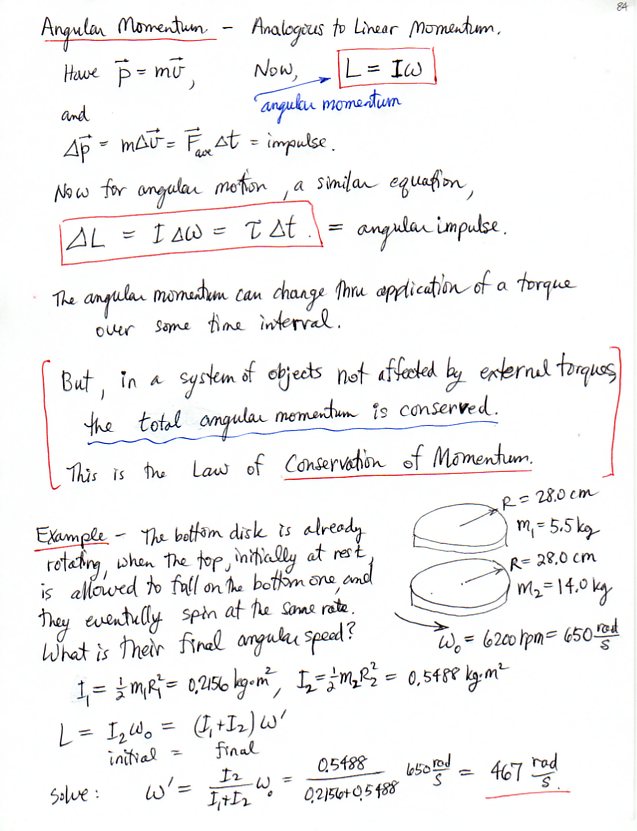 84
Angular Momentum - Analogous to Linear Momentum.
Have p⃗ = mv⃗, Now, L = Iω
angular momentum
and
Δp⃗ = mΔv⃗ = F⃗ave Δt = impulse.
Now for angular motion, a similar equation,
ΔL = IΔω = τΔt. = angular impulse.
The angular momentum can change thru application of a torque
over some time interval.
But, in a system of objects not affected by external torques,
the total angular momentum is conserved.
This is the Law of Conservation of Momentum.
Example - The bottom disk is already
rotating, when the top, initially at rest,
is allowed to fall on the bottom one, and
they eventully spin at the same rate.
What is their final angular speed?
R = 28.0 cm
m₁ = 5.5 kg
R = 28.0 cm
m₂ = 14.0 kg
ω₀ = 6200 rpm = 650 rad/s
I₁ = ½ m₁R₁² = 0.2156 kg·m², I₂ = ½ m₂R₂² = 0.5488 kg·m²
L = I₂ω₀ = (I₁+I₂) ω'
initial = final
solve: ω' = I₂/(I₁+I₂) ω₀ = 0.5488/(0.2156+0.5488) 650 rad/s = 467 rad/s.